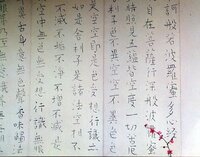 訶般若波羅蜜多心經
自在菩薩行深般若波
照見五蘊皆空度一切苦
利子色不異空空不異色
是空空即是色受想行識亦
如是舍利子是諸法空
不滅不垢不淨不增不減是
空中無色無受想行識無眼
鼻舌身意無色聲香味觸法